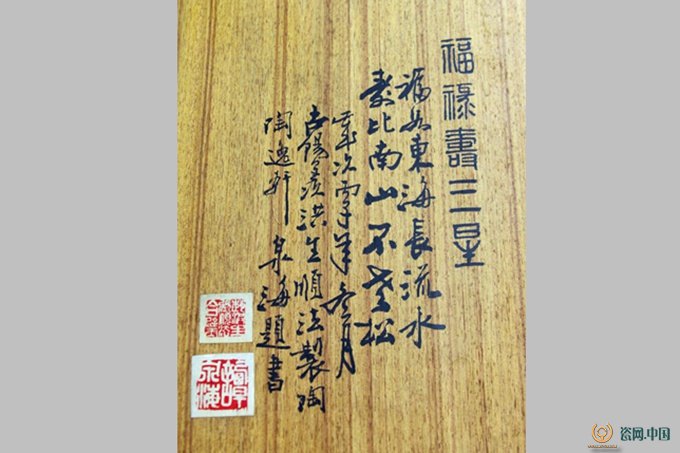 福祿壽三星
福如東海長流水
壽比南山不老松
歲次冬月
古陽羨洪生順法製陶
陶逸軒 泉海題書
瓷网.中国